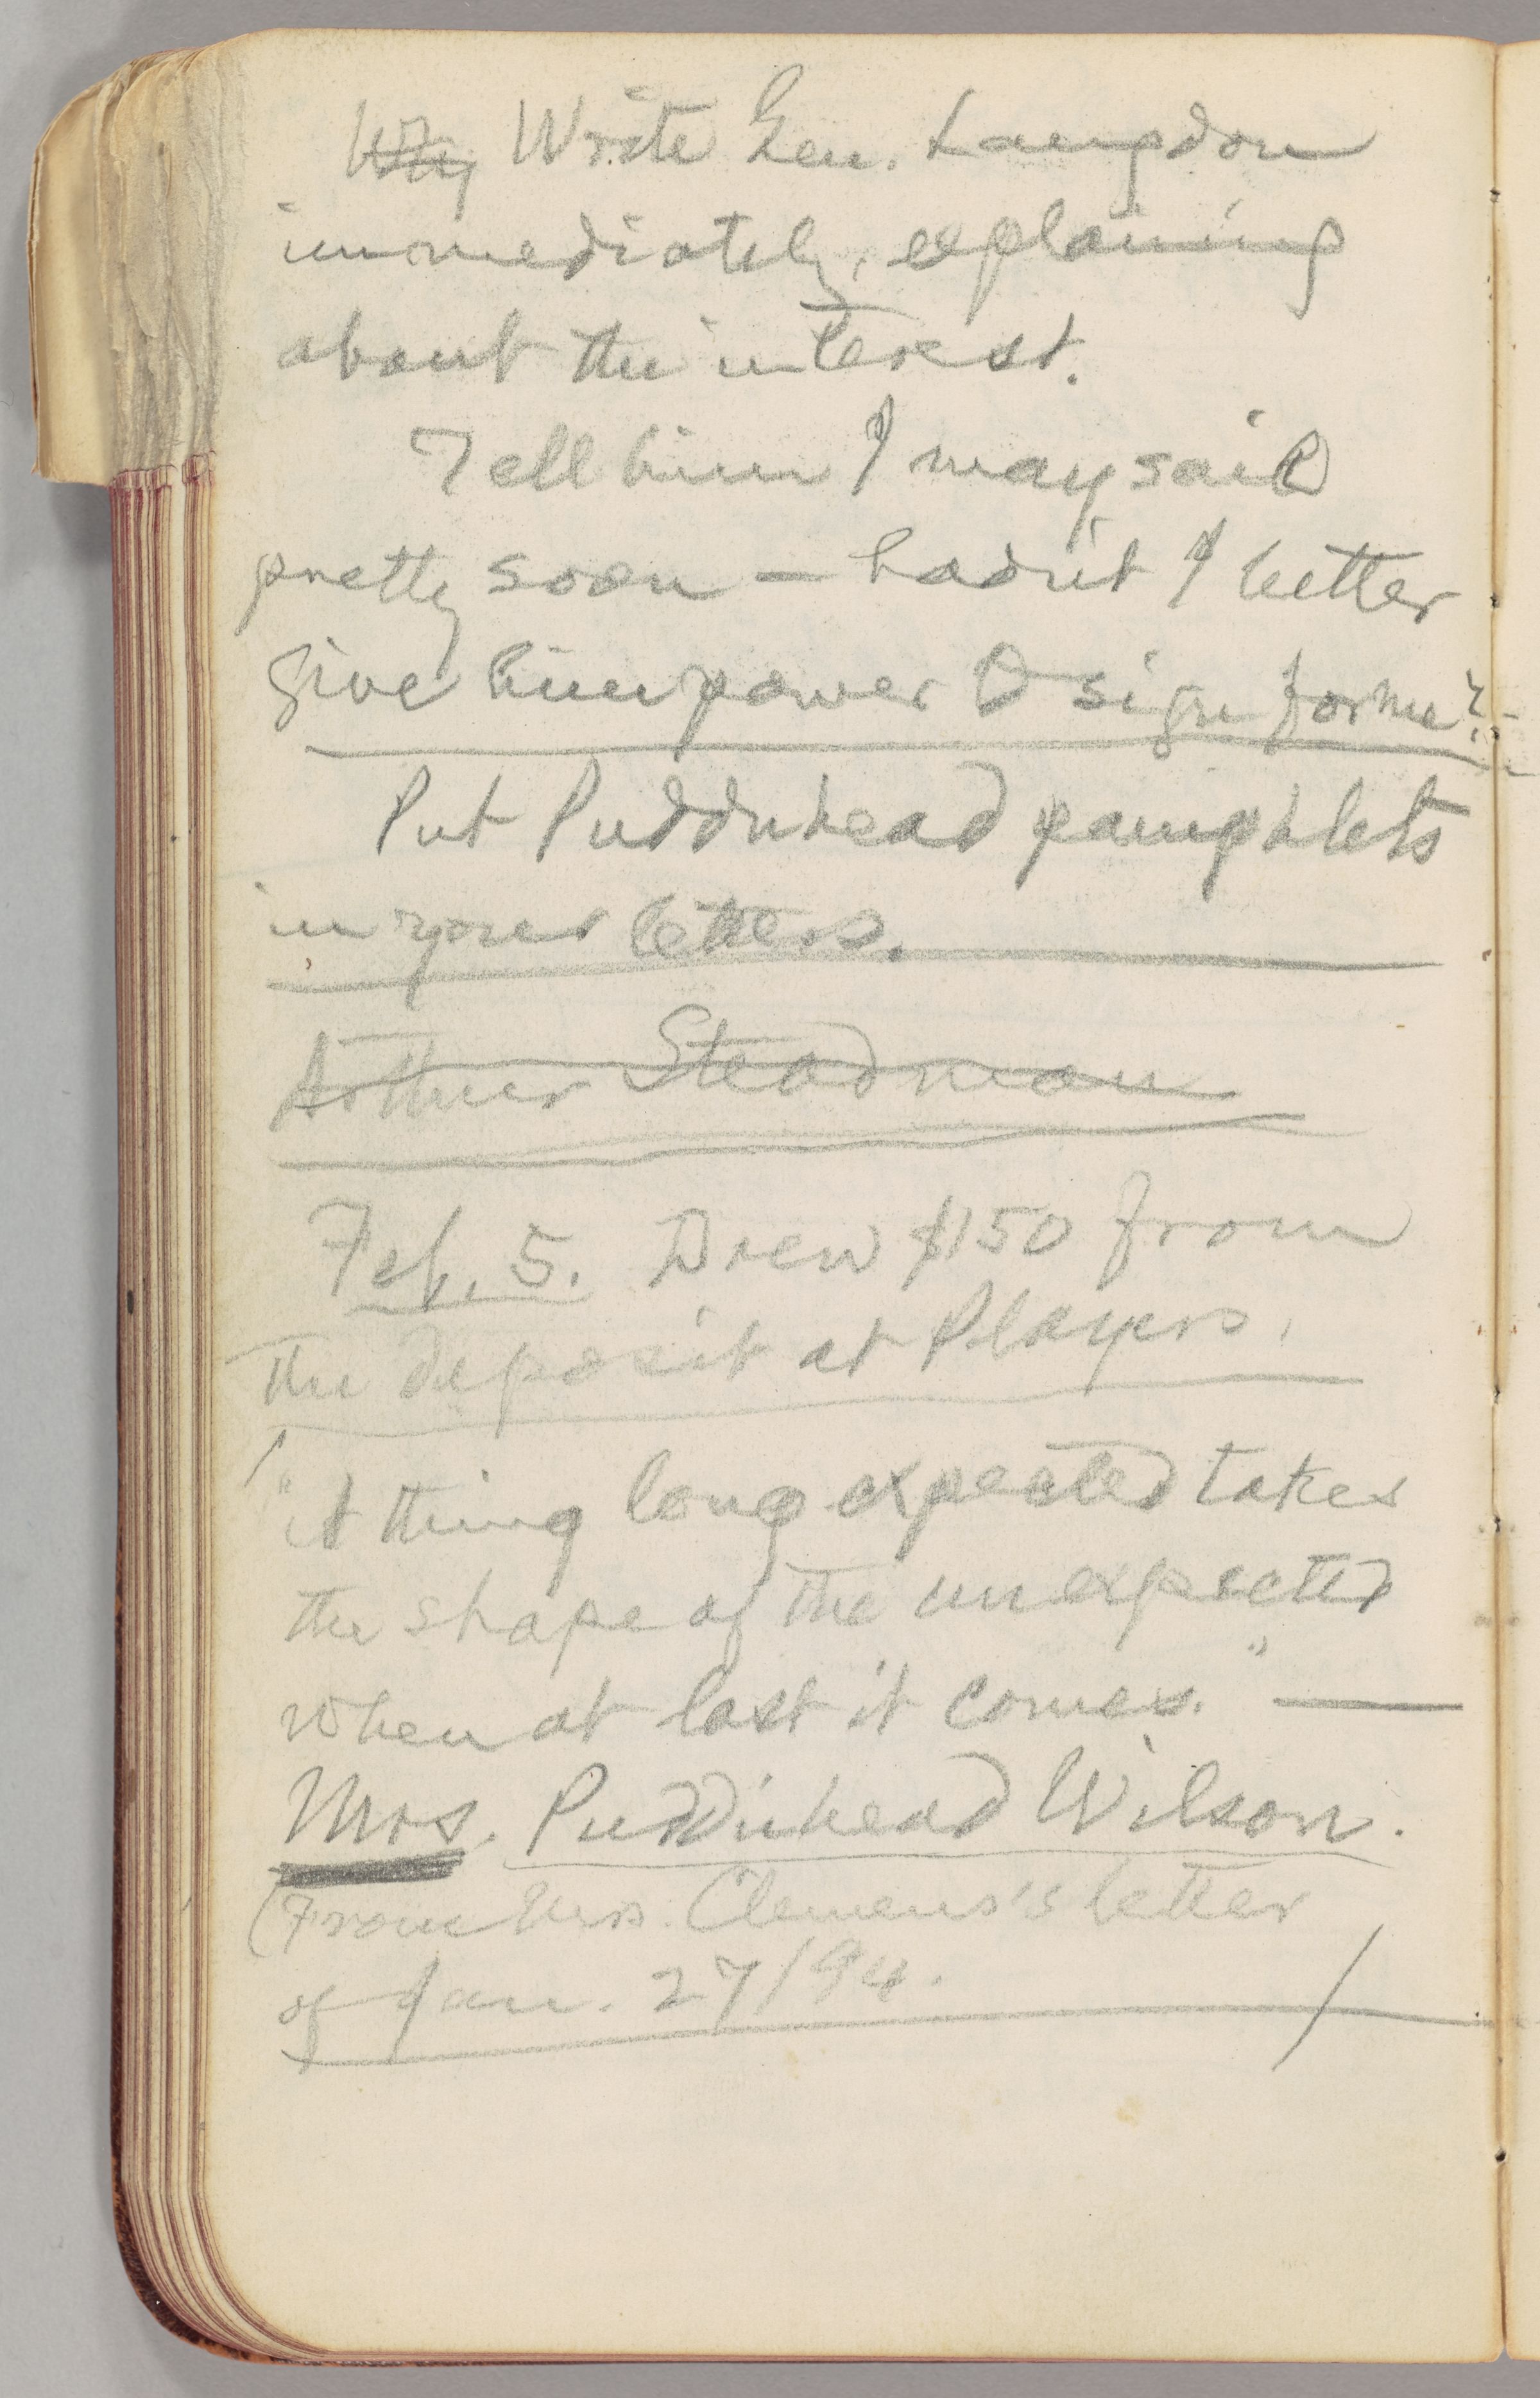 Why Write Gen. Langdon
immediately, explaining
about the interest.
Tell him I may sail
pretty soon — hadn't I better
give him power to sign for me?
Put Puddnhead pamphlets
in your letters.
Arthur Steadman
Feb. 5. Drew $150 from
the deposit at Players.
"A thing long expected takes
the shape of the unexpected
when at last it comes." —
Mrs. Pudd'nhead Wilson.
(From Mrs. Clemens's letter
of Jan. 27/94.